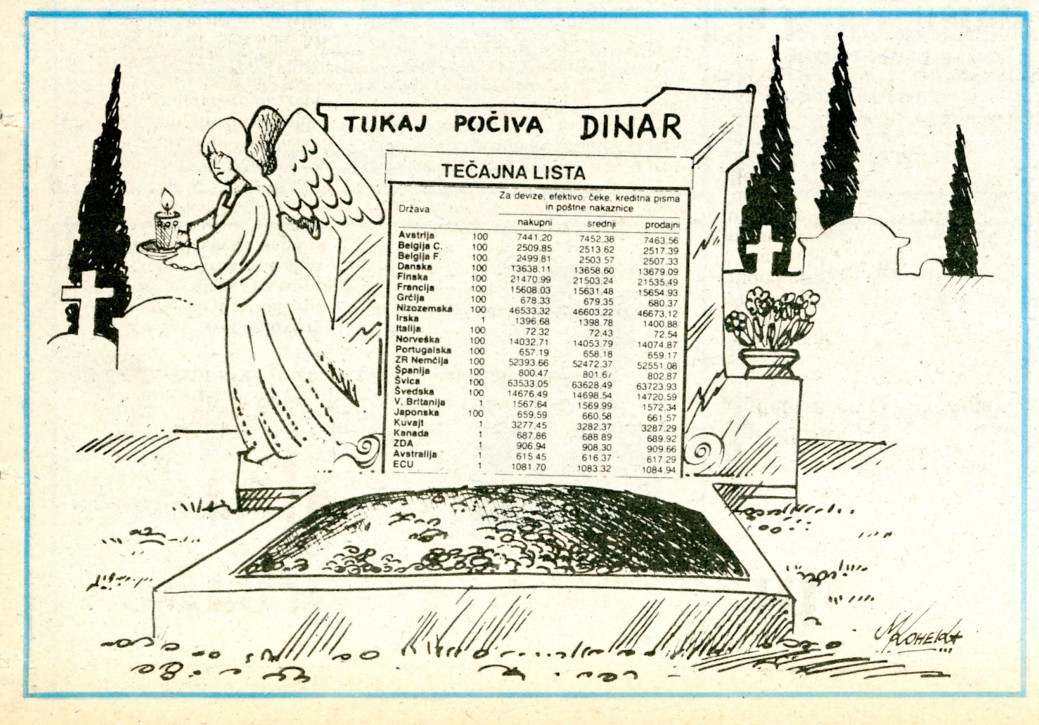 TUKAJ POČIVA DINAR
TEČAJNA LISTA
Država
Za devize, efektivo, čeke, kreditna pisma
in poštne nakaznice
nakupni srednji prodajni
Avstrija 100 7441.20 7452.38 7463.56
Belgija C. 100 2509.85 2513.62 2517.39
Belgija F. 100 2499.81 2503.57 2507.33
Danska 100 13638.11 13658.60 13679.09
Finska 100 21470.99 21503.24 21535.49
Francija 100 15608.03 15631.48 15654.93
Grčija 100 678.33 679.35 680.37
Nizozemska 100 46533.32 46603.22 46673.12
Irska 1 1396.68 1398.78 1400.88
Italija 100 72.32 72.43 72.54
Norveška 100 14032.71 14053.79 14074.87
Portugalska 100 657.19 658.18 659.17
ZR Nemčija 100 52393.66 52472.37 52551.08
Španija 100 800.47 801.67 802.87
Švica 100 63533.05 63628.49 63723.93
Švedska 100 14676.49 14698.54 14720.59
V. Britanija 1 1567.64 1569.99 1572.34
Japonska 100 659.59 660.58 661.57
Kuvajt 1 3277.45 3282.37 3287.29
Kanada 1 687.86 688 89 689.92
ZDA 1 906.94 908.30 909.66
Avstralija 1 615.45 616.37 617.29
ECU 1 1081.70 1083.32 1084.94